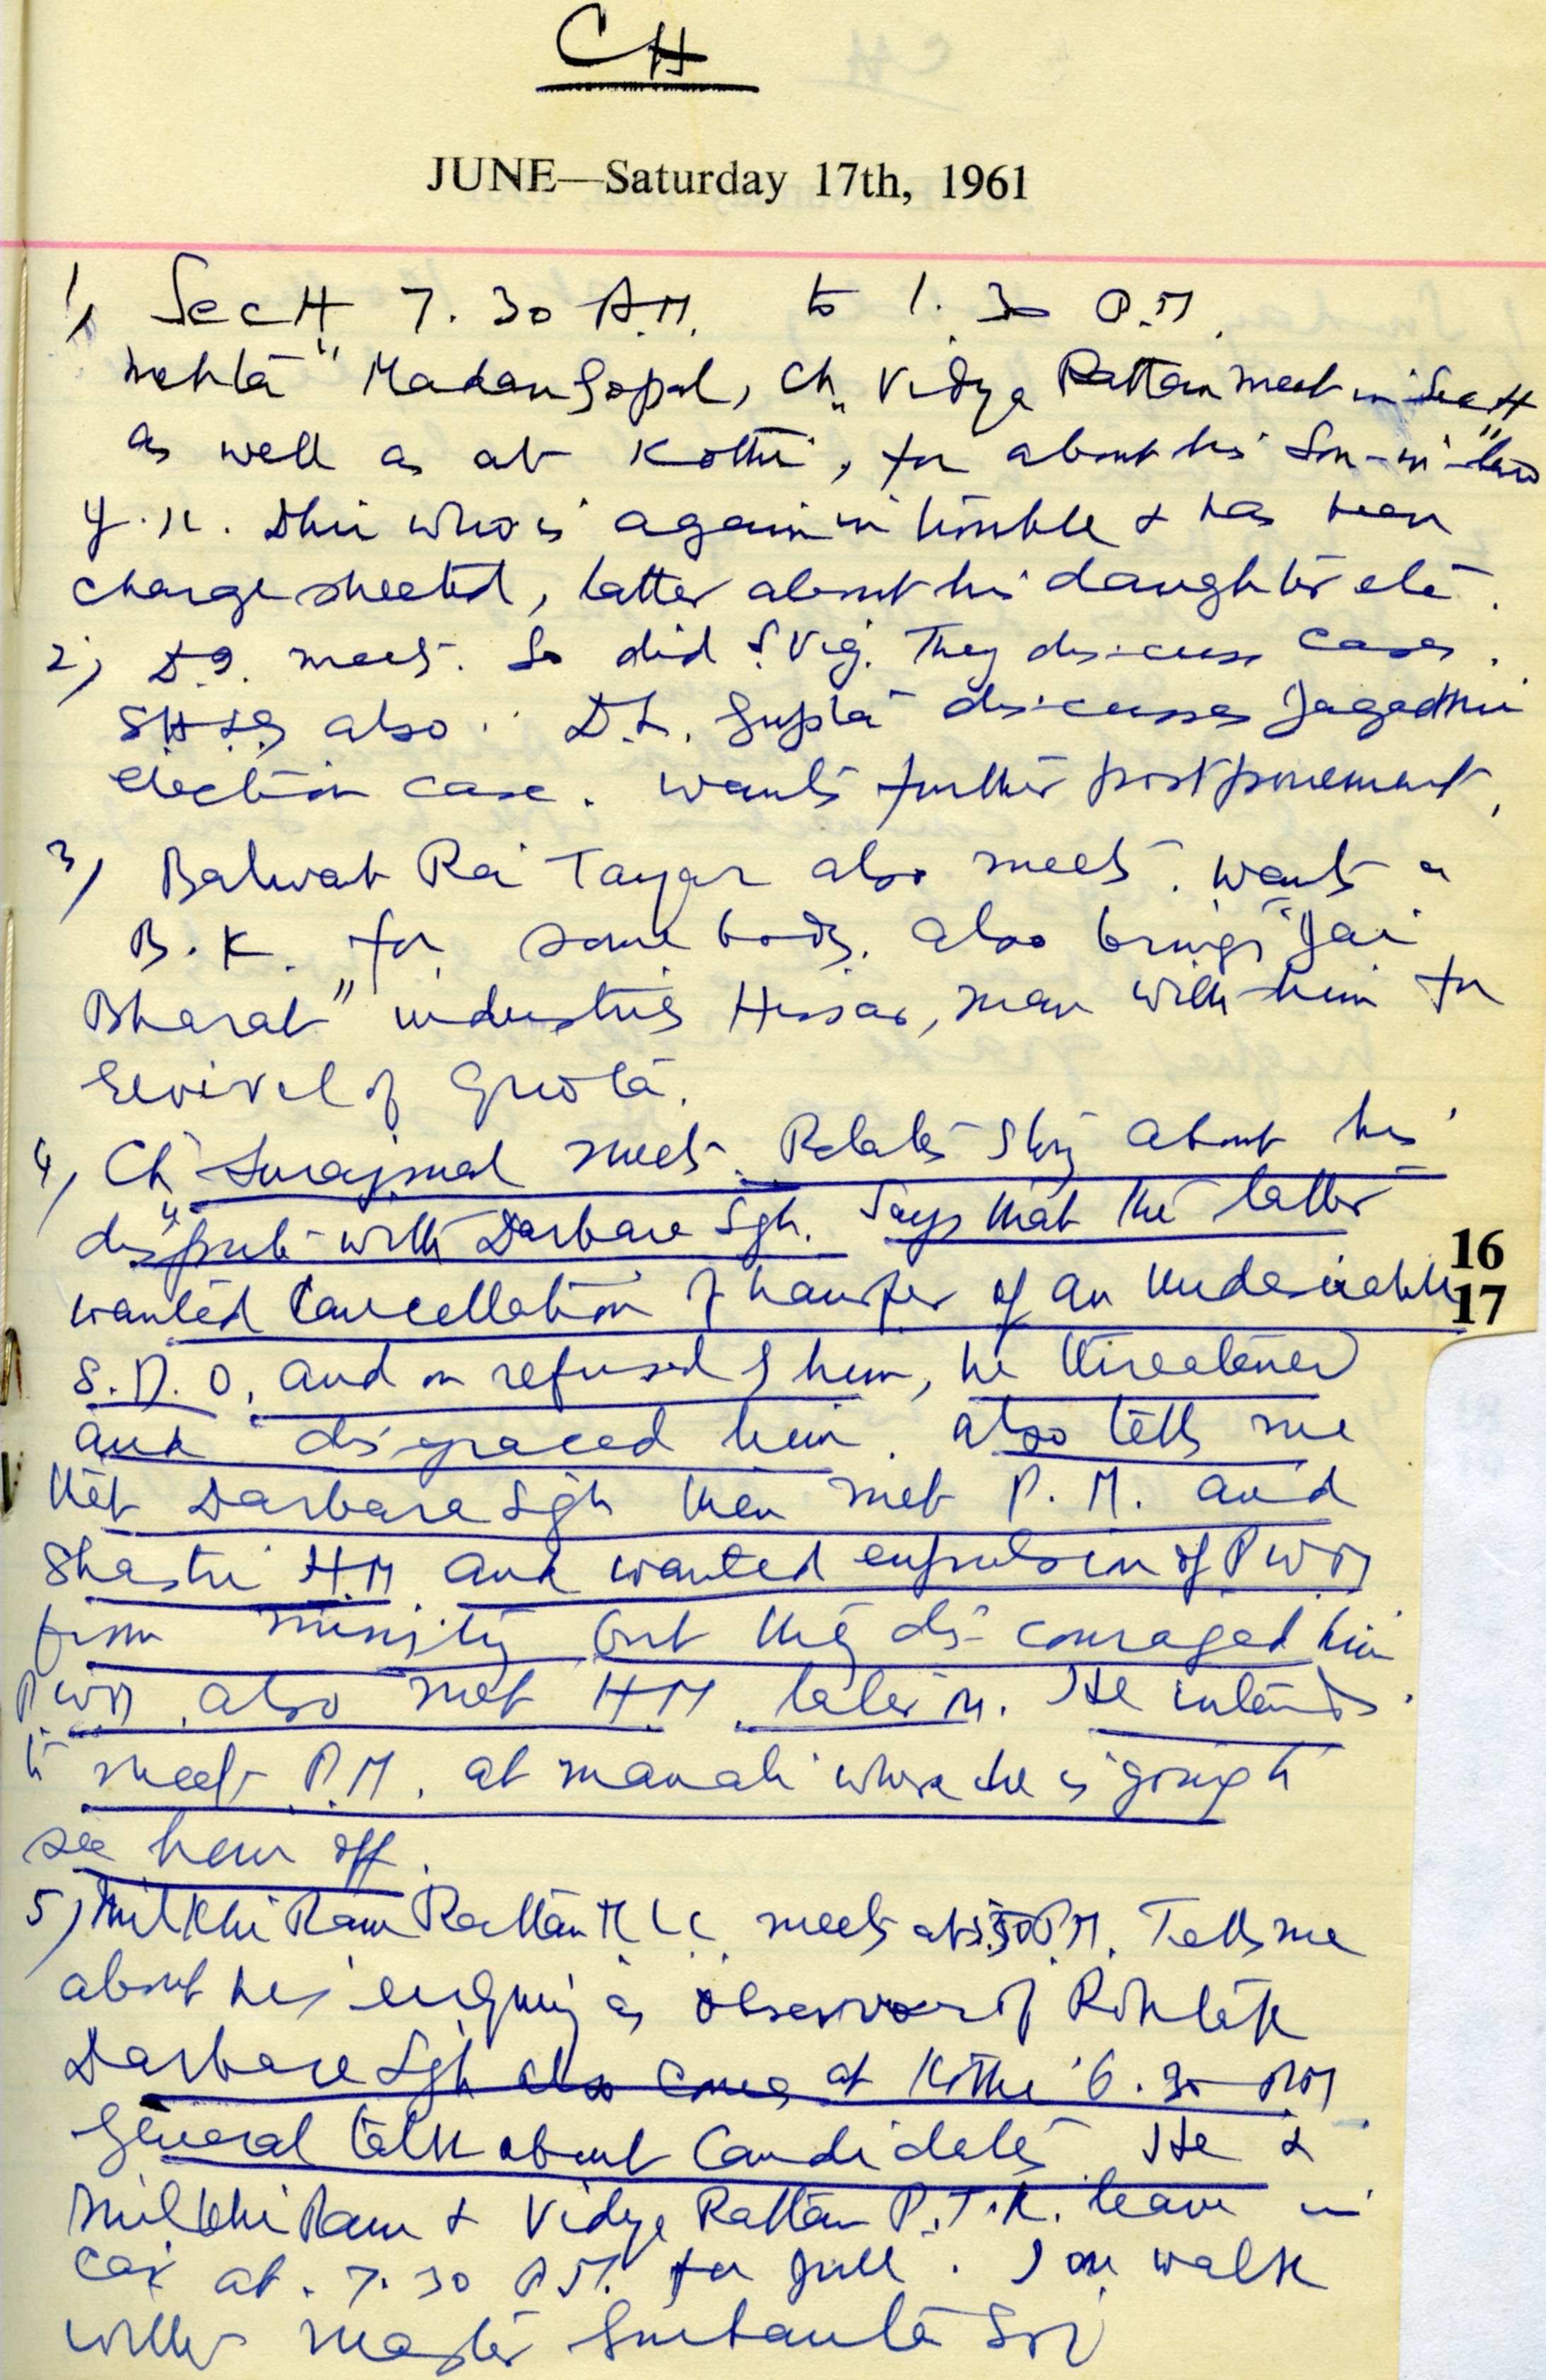 CH
JUNE—Saturday 17th, 1961
1, Sectt 7.30 A.M. to 1.30 P.M.
Mehta Madan Gopal, Ch. Vidya Rattan meet in Sectt
as well as at Kothi, for about his Son-in-law
Y.K. Dhir who is again in trouble & has been
charge sheeted, latter about his daughter etc.
2) D.G. meets. So did S. Vig. They discuss cases.
also. D.L. Gupta discusses Jagadhri
election case. wants further postponement,
3) Balwant Rai Tayar also meets. wants a
B.K. for some body. also brings "Jai
Bharat" industries Hissar, man with him for
revival of Quota.
4, Ch. Surajmal meets. Relates story about his
dispute with Darbara Sgh. Says that the latter
wanted Cancellation of transfer of an undesirable
S.D.O, and on refusal of him, he threatened
and disgraced him. also tells me
that Darbara Sgh then met P.M. and
Shastri HM and wanted expulsion of PWM
from ministry but they dis-couraged him
PWM also met HM later on. He intends
to meet P.M. at Manali where he is going to
see him off.
5) Milkhi Ram Rattan MLC meets at 5.30 P.M. Tells me
about his enquiry as observer of Rohtak
Darbara Sgh also comes at Kothi 6.30 PM
General talk about Candidates. He &
Milkhi Ram & Vidya Rattan P.T.K. leave in
car at 7.30 P.M. for Jull. I on walk
with Master Gurbanta Sgh
16
17